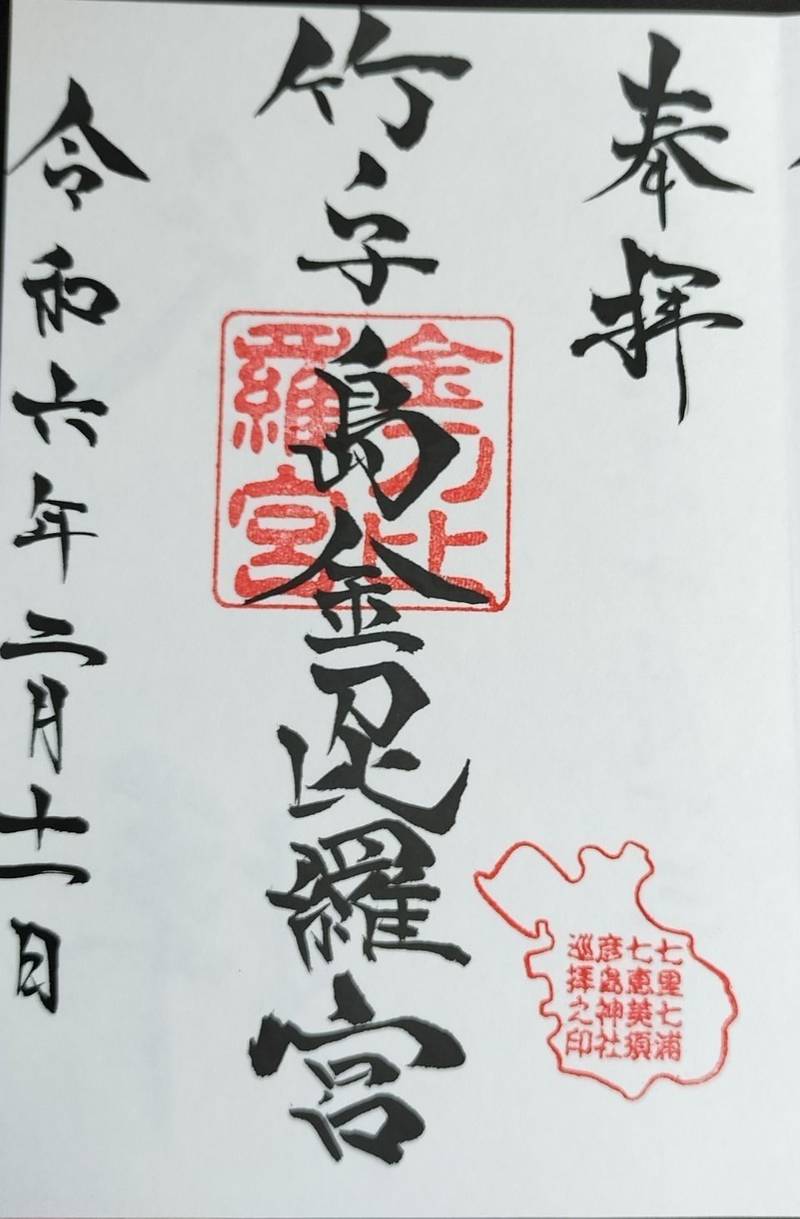 奉拝
七里七浦
七恵美須
彦島神社
巡拝之印
竹子島金毘羅宮
金刀比羅宮
令和六年二月十一日